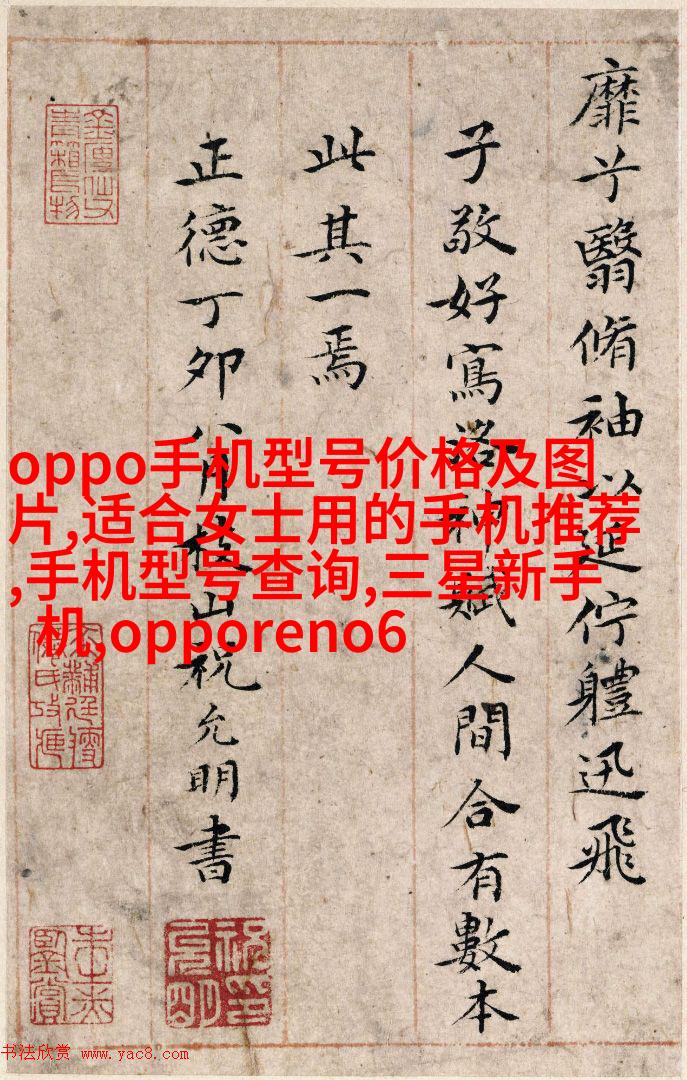 靡兮翳脩袖以延佇體迅飛
子敬好寫洛神賦人間合有數本
此其一焉
正德丁卯八月枝山祝允明書
oppo手机型号价格及图
片,适合女士用的手机推荐
,手机型号查询,三星新手
机,opporeno6
书法欣赏 www.yac8.com